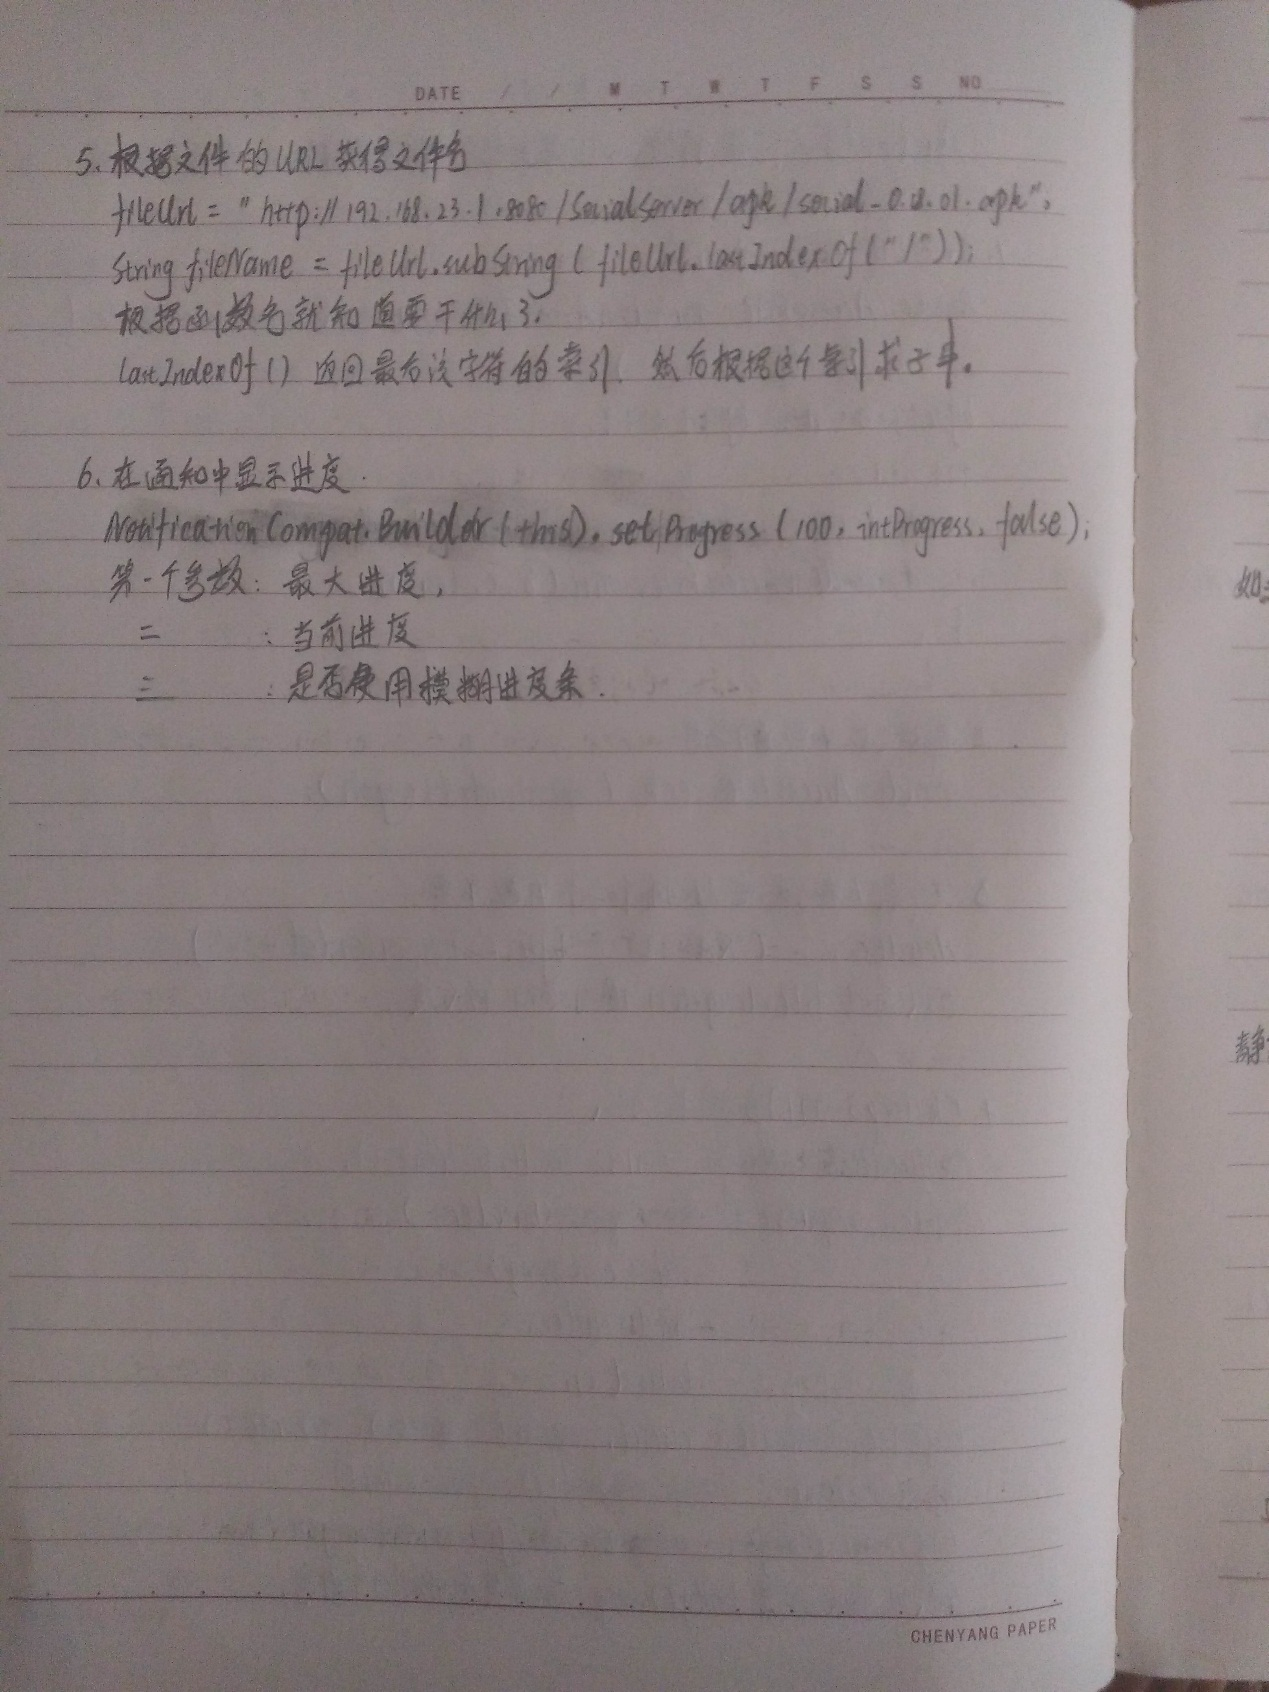 DATE / / M T W T F S S NO
5、根据文件的URL获得文件名
fileUrl = "http://192.168.23.1.8080/SocialServer/apk/social-0.8.01.apk";
String fileName = fileUrl.subString(fileUrl.lastIndexOf("/"));
根据函数名就知道要干什么了.
lastIndexOf() 返回最后该字符的索引, 然后根据这个索引求子串。
6、在通知中显示进度.
NotificationCompat.Builder(this).setProgress(100, intProgress, false);
第一个参数: 最大进度,
二 : 当前进度
三 : 是否使用模糊进度条.
如
静
CHENYANG PAPER